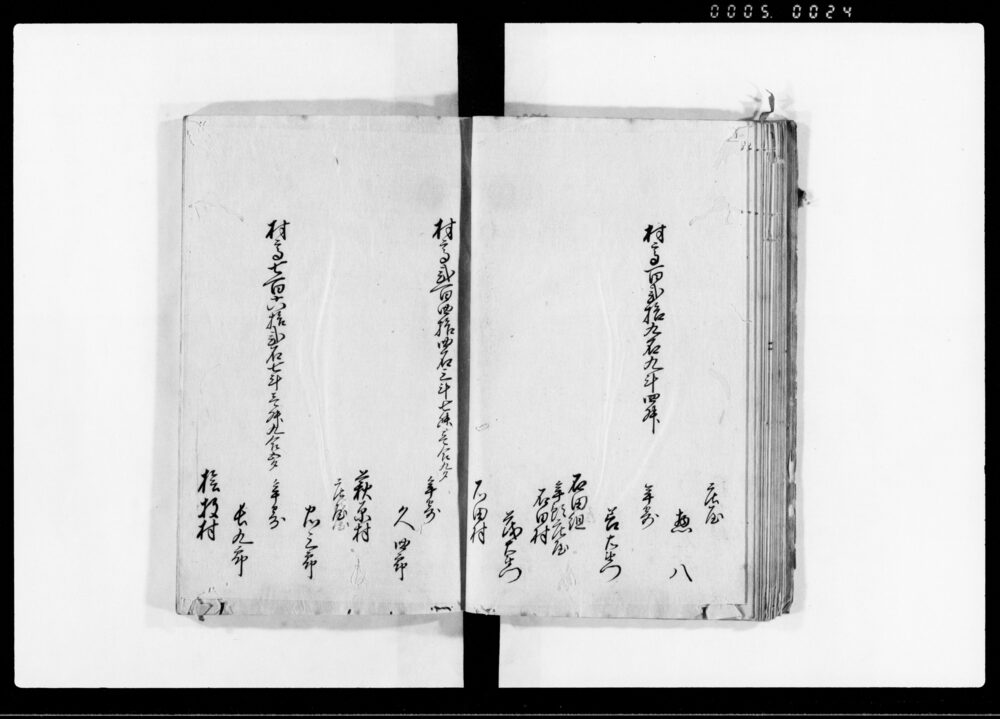 0005 0024
庄屋
惣八
村高百四弐拾九石九斗四升
年寄
石田組
年番庄屋
石田村
石田村
村高弐百四拾四石三斗七升壱合九夕
年寄
久四郎
萩原村
庄屋
忠三郎
村高七百六拾弐石七斗三升九合
年寄
長九郎
桧牧村